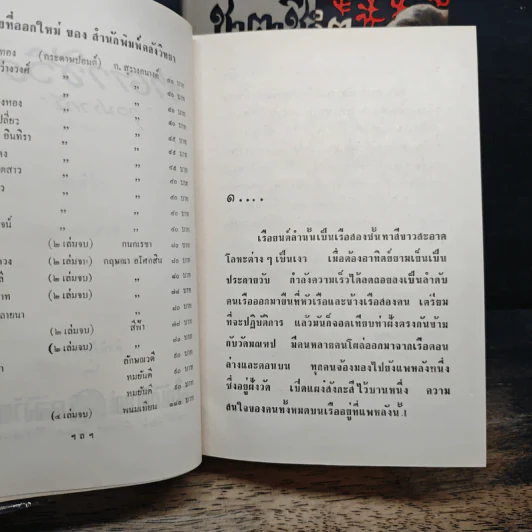 ยที่ออกใหม่ ของ สำนักพิมพ์คลังวิทยา
ทอง (กระดาษปอนด์) ก. สุรางคนางค์ ๘๐ บาท
ว่างวงศ์ ” ”
” ”
งทอง ” ”
เปลี่ยว ” ”
อินทิรา ” ” ๔๕ บาท
” ” ๔๕ บาท
ดสาว ” ” ๔๕ บาท
ว ” ” ๔๐ บาท
” ” ๔๐ บาท
จน์ ” ” ๔๐ บาท
(๒ เล่มจบ) กนกเรขา
ดวง (๒ เล่มจบ) กฤษณา อโศกสิน
ลี ”
าท ” ”
ลายนา ” ”
(๒ เล่มจบ) สีฟ้า
(๒ เล่มจบ) ”
ลักษณวดี
ทมยันตี
ทมยันตี
(๔ เล่มจบ) พนมเทียน
ฯ ล ฯ
๑....
เรือยนต์ลำนั้นเป็นเรือสองชั้นทาสีขาวสะอาด
โลหะต่าง ๆ เป็นเงา เมื่อต้องอาทิตย์ยามเย็นเป็น
ประกายวับ กำลังความเร็วได้ลดลงเป็นลำดับ
คนเรือออกมายืนที่หัวเรือและข้างเรือสองคน เตรียม
ที่จะปฏิบัติการ แล้วมันก็จอดเทียบท่าฝั่งตรงกันข้าม
กับวัดมณฑป มีคนหลายคนโผล่ออกมาจากเรือตอน
ล่างและตอนบน ทุกคนจ้องมองไปยังแพหลังหนึ่ง
ซึ่งอยู่ฝั่งวัด เปิดแผงสังกะสีไว้บานหนึ่ง ความ
สนใจของคนทั้งหมดบนเรืออยู่ที่แพหลังนั้น